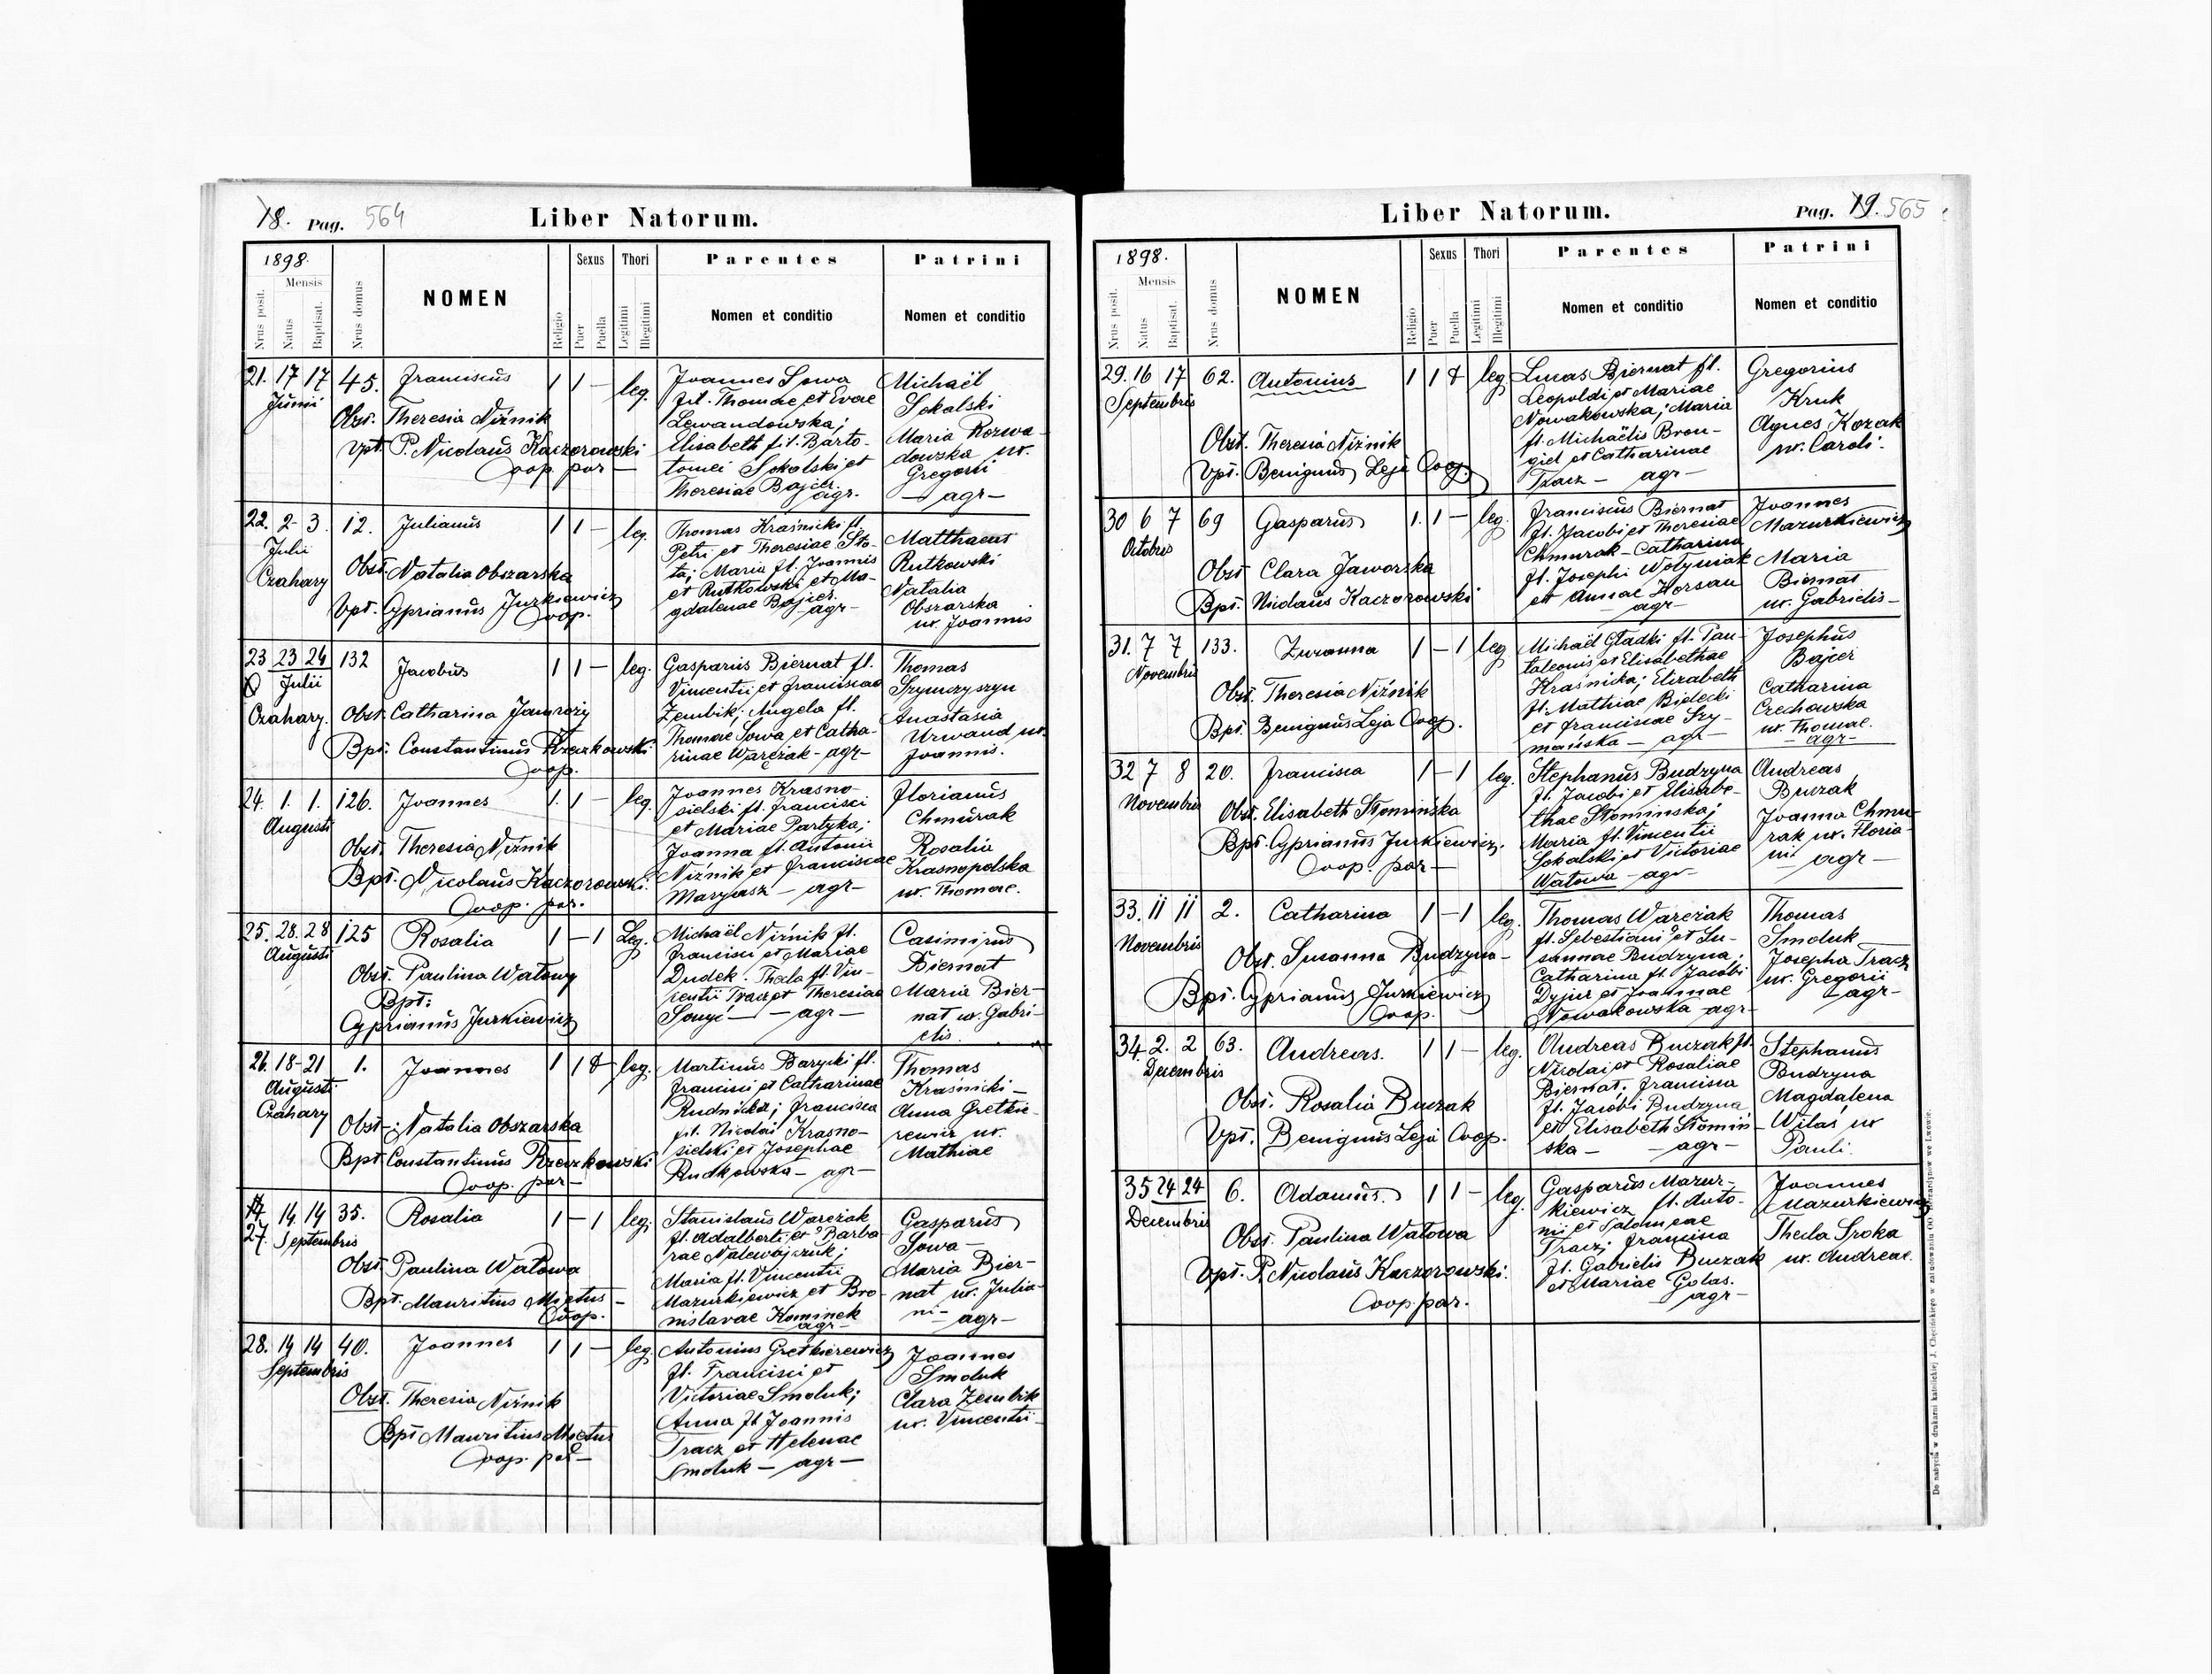 18. Pag. 564 Liber Natorum.
1898. Sexus Thori Parentes Patrini
Mensis
Nrus posit. Natus Baptisat. Nrus domus NOMEN Religio Puer Puella Legitimi Illegitimi Nomen et conditio Nomen et conditio
21. 17 17 45. Franciscus 1 1 – leg.
Junii
Obst. Theresia Niżnik
Vpt. P. Nicolaus Kaczorowski
Coop. par –
Joannes Sowa
fil. Thomae et Evae
Lewandowska;
Elisabeth fil. Barto-
lomei Sokolski et
Theresiae Bajcer.
agr.
Michaël
Sokalski
Maria Rozwa-
dowska ux.
Gregorii
– agr –
22. 2 – 3. 12. Julianus 1 1 – leg.
Julii
Czahary
Obst. Natalia Obszarska
Vpt. Cyprianus Jurkiewicz
Coop.
Thomas Kraśnicki fl.
Petri et Theresiae Sto-
ta; Maria fl. Joannis
et Rutkowski et Ma-
gdalenae Bajcer.
agr –
Matthaeus
Rutkowski
Natalia
Obszarska
ux. Joannis
23 23 24 132 Jacobus 1 1 – leg.
Julii
Czahary.
Obst. Catharina Jamroży
Bpt. Constantinus Rzeczkowski
Coop.
Gasparus Biernat fl.
Vincentii et Franciscae
Zembik; Angela fl.
Thomae Sowa et Catha-
rinae Wareżak – agr –
Thomas
Szymczyszyn
Anastasia
Urwand ux.
Joannis.
24. 1. 1. 126. Joannes 1. 1 – leg.
Augusti
Obst. Theresia Niżnik
Bpt. Nicolaus Kaczorowski.
Coop. par.
Joannes Krasno-
sielski fl. Francisci
et Mariae Partyka;
Joanna fl. Antonii
Niżnik et Franciscae
Maryasz – agr –
Florianus
Chmurak
Rosalia
Krasnopolska
ux. Thomae.
25. 28. 28 125 Rosalia 1 – 1 Leg.
Augusti
Obst. Paulina Watowy
Bpt:
Cyprianus Jurkiewicz
Michaël Niżnik fl.
Francisci et Mariae
Dudek. Thecla fl. Vin-
centii Tracz et Theresiae
– agr –
Casimirus
Biernat
Maria Bier-
nat ux. Gabri-
elis.
26. 18 – 21 1. Joannes 1 1 leg.
Augusti
Czahary
Obst. Natalia Obszarska
Bpt. Constantinus Rzeczkowski
Coop. par –
Martinus Barycki fl.
Francisci et Catharinae
Rudnicka; Francisca
fil. Nicolai Krasno-
sielski et Josephae
Rudkowska – agr –
Thomas
Kraśnicki –
Anna Gretkie-
rewicz ux.
Mathiae
27. 14 14 35. Rosalia 1 – 1 leg.
Septembris
Obst. Paulina Watowa
Bpt. Mauritius Miętus –
Coop.
Stanislaus Wareżak
fl. Adalberti et Barba
rae Nalewajczuk;
Maria fl. Vincentii
Mazurkiewicz et Bro-
nislavae Kominek
agr –
Gasparus
Sowa –
Maria Bier-
nat ux. Julia-
ni –
agr –
28. 14 14 40. Joannes 1 1 – leg.
Septembris
Obst. Theresia Niżnik
Bpt Mauritius Miętus
Coop. par –
Antonius Gretkierewicz
fl. Francisci et
Victoriae Smoluk;
Anna fl Joannis
Tracz et Helenae
Smoluk – agr –
Joannes
Smoluk
Clara Zembik
ux. Vincentii –
Liber Natorum. Pag. 19. 565
1898. Sexus Thori Parentes Patrini
Mensis
Nrus posit. Natus Baptisat. Nrus domus NOMEN Religio Puer Puella Legitimi Illegitimi Nomen et conditio Nomen et conditio
29. 16 17 62. Antonius 1 1 leg.
Septembris
Obst. Theresia Niżnik
Vpt. Benignus Leja Coop.
Lucas Biernat fl.
Leopoldi et Mariae
Nowakowska; Maria
fl. Michaëlis Bron-
giel et Catharinae
Tracz – agr –
Gregorius
Kruk
Agnes Kozak
ux. Caroli.
30 6 7 69 Gasparus 1. 1 – leg.
Octobris
Obst Clara Jaworska
Bpt. Nicolaus Kaczorowski
Franciscus Biernat
fl. Jacobi et Theresiae
Chmurak – Catharina
fl. Josephi Wołyniak
et Annae Korsan
– agr –
Joannes
Mazurkiewicz
Maria
Biernat
ux. Gabrielis –
31. 7 7 133. Zuzanna 1 – 1 leg
Novembris
Obst. Theresia Niżnik
Bpt. Benignus Leja Coop.
Michaël Gładki fl. Pan-
taleonis et Elisabethae
Kraśnicka; Elizabeth
fl. Mathiae Bielecki
et Franciscae Szy-
mańska – agr –
Josephus
Bajcer
Catharina
Czechowska
ux. Thomae.
– agr –
32 7 8 20. Francisca 1 – 1 leg.
Novembris
Obst. Elisabeth Słomińska
Bpt. Cyprianus Jurkiewicz.
Coop. par –
Stephanus Budzyna
fl. Jacobi et Elisabe-
thae Słominska;
Maria fl. Vincentii
Sokalski et Victoriae
Watowa – agr –
Andreas
Buczak
Joanna Chmu-
rak ux. Floria-
ni agr –
33. 11 11 2. Catharina 1 – 1 leg.
Novembris
Obst. Susanna Budzyna –
Bpt. Cyprianus Jurkiewicz
Coop.
Thomas Wareżak
fl. Sebestiani et Su-
sannae Budzyna;
Catharina fl. Jacobi
Dyjur et Joannae
Nowakowska agr –
Thomas
Smoluk
Josepha Tracz
ux. Gregorii
– agr –
34 2. 2 63. Andreas. 1 1 – leg.
Decembris
Obst. Rosalia Buczak
Vpt. Benignus Leja Coop.
Andreas Buczak fl.
Nicolai et Rosaliae
Biernat; Francisca
fl. Jacobi Budzyna
et Elisabeth Słomiń-
ska – – agr –
Stephanus
Budzyna
Magdalena
Wilaś ux
Pauli.
35 24 24 6. Adamus. 1 1 – leg.
Decembris
Obst. Paulina Watowa
Vpt. P. Nicolaus Kaczorowski.
Coop. par.
Gasparus Mazur-
kiewicz fl. Anto-
nii et Salomeae
Tracz; Francisca
fl. Gabrielis Buczak
et Mariae Golas.
– agr –
Joannes
Mazurkiewicz
Thecla Sroka
ux. Andreae.
Do nabycia w drukarni katolickiej J. Chęcińskiego w zabudowaniu OO. Bernardynów we Lwowie.